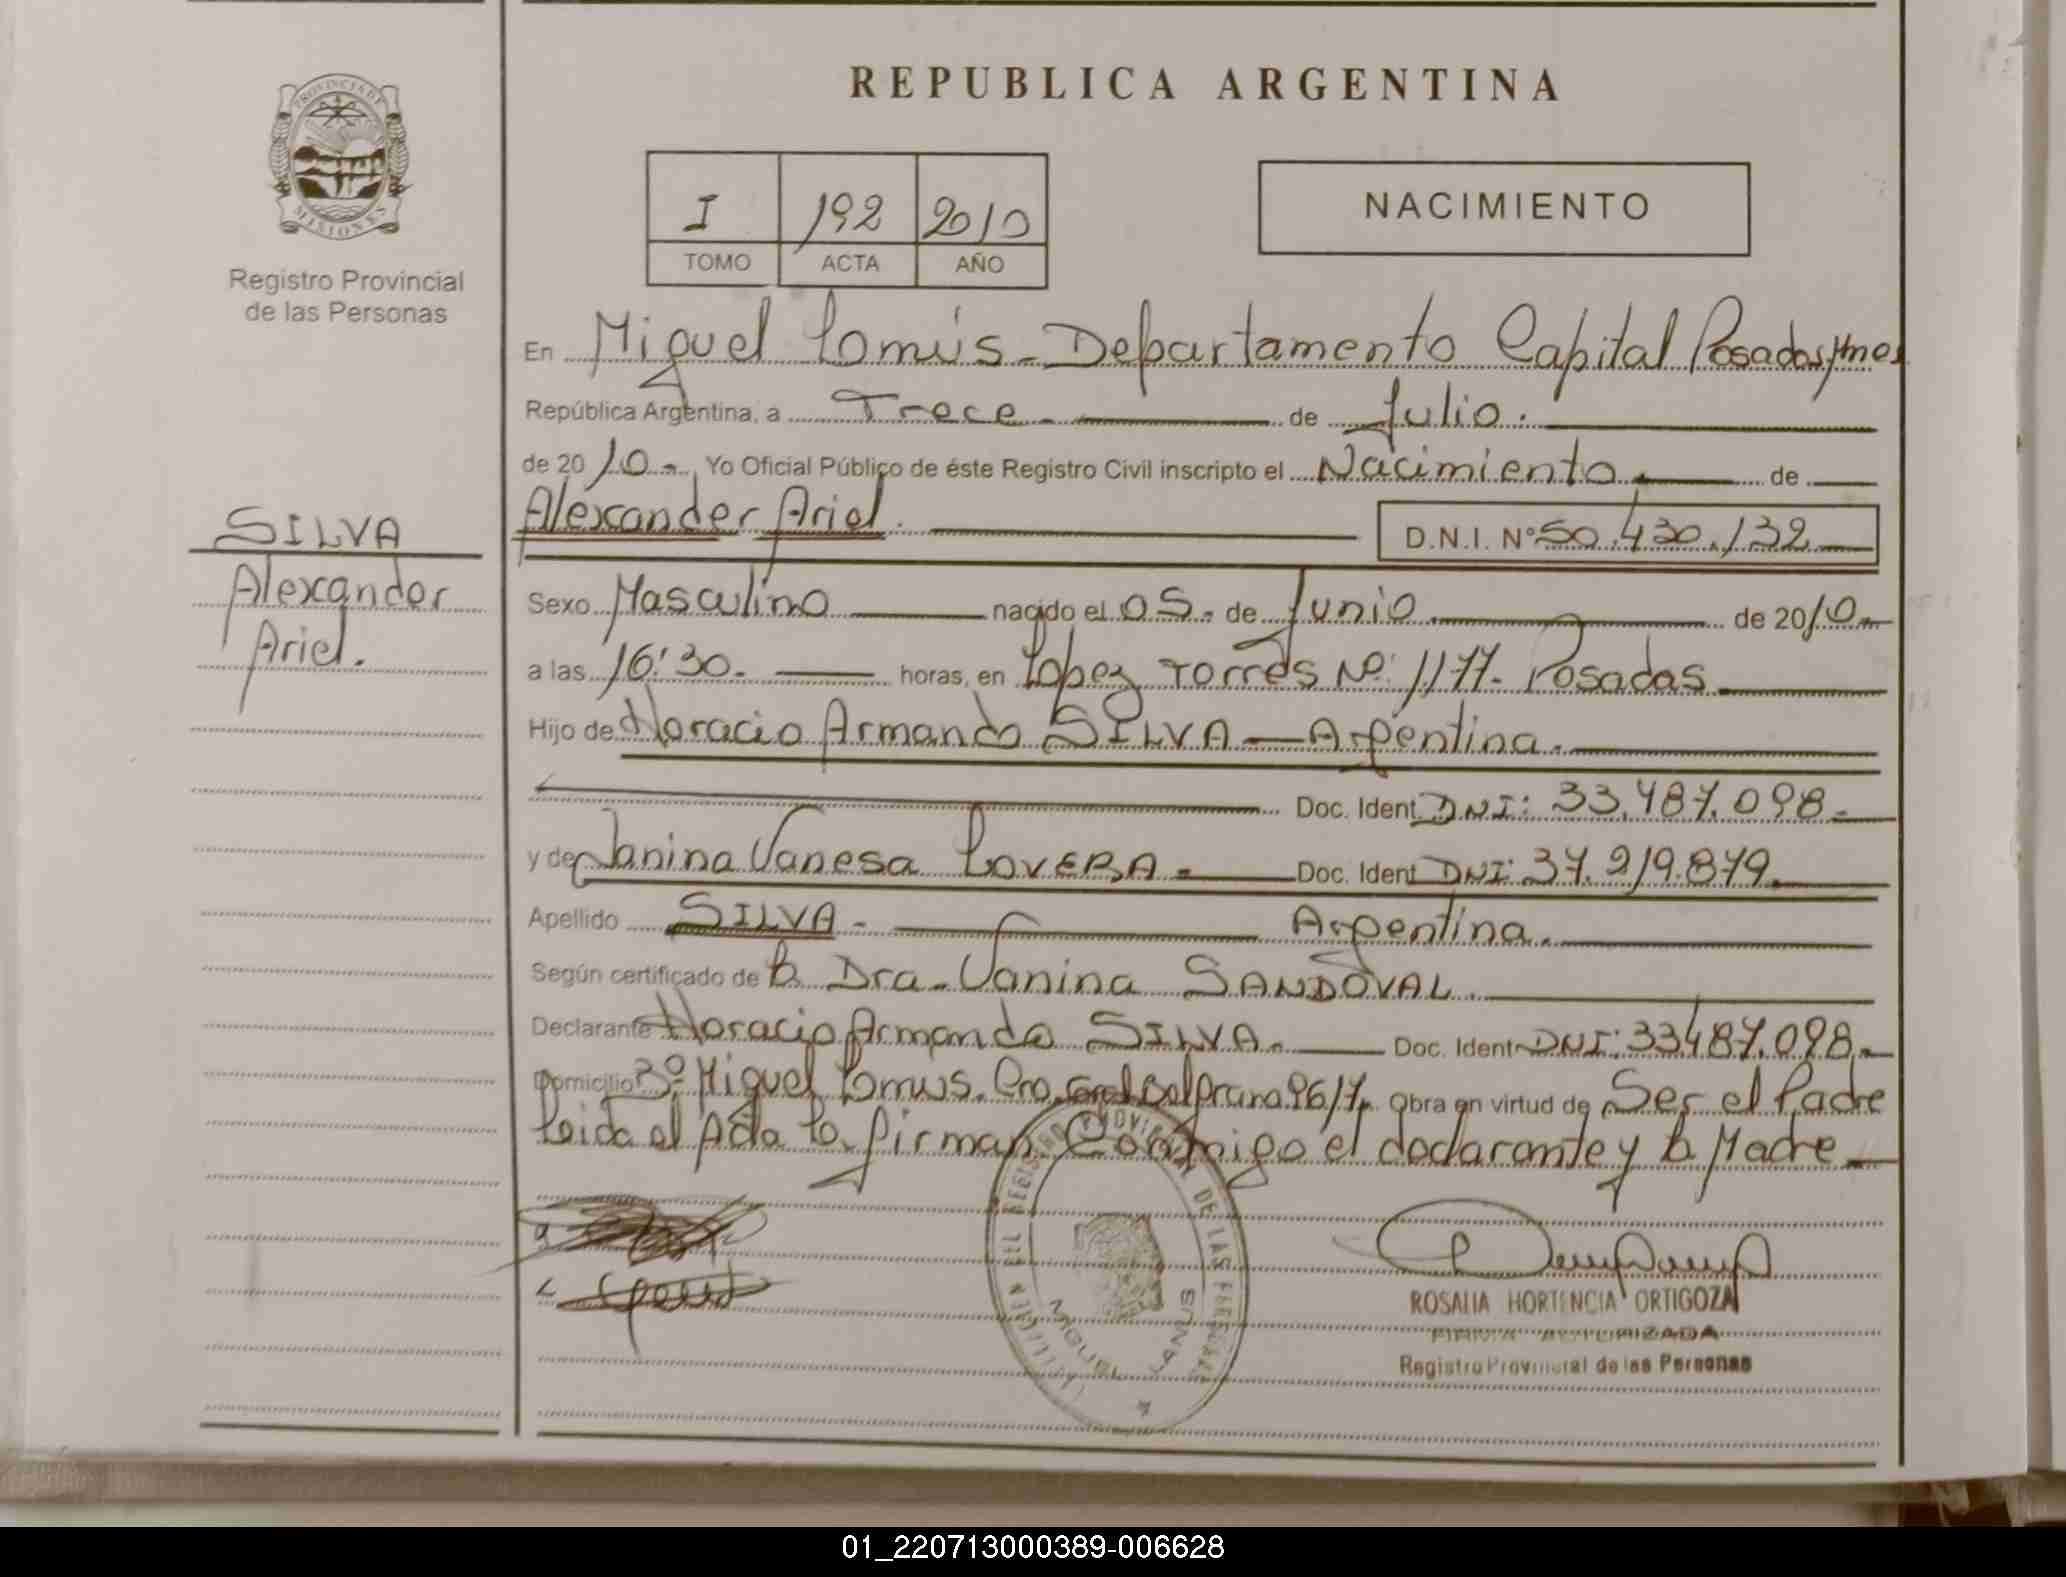 REPUBLICA ARGENTINA
PROVINCIA DE
MISIONES
Registro Provincial
de las Personas
I 192 2010
TOMO ACTA AÑO
NACIMIENTO
En Miguel Lanús - Departamento Capital Posadas, Mnes
República Argentina, a Trece - de Julio.
de 2010 - Yo Oficial Público de éste Registro Civil inscripto el Nacimiento de
Alexander Ariel. D.N.I. Nº 50.430.132
SILVA
Alexander
Ariel.
Sexo Masculino nacido el 05 - de Junio de 2010 -
a las 16:30 - horas, en Lopez Torres Nº: 1177 - Posadas
Hijo de Horacio Armando SILVA — Argentina.
Doc. Ident DNI: 33.487.098 -
y de Janina Vanesa LOVERA - Doc. Ident DNI: 37.219.879.
Apellido SILVA - Argentina.
Según certificado de la Dra. Vanina SANDOVAL.
Declarante Horacio Armando SILVA. Doc. Ident DNI: 33487.098 -
Domicilio Bº Miguel Lanus. Obra en virtud de Ser el Padre
Leida el Acta la firman Conmigo el declarante y la Madre
MIGUEL LANUS
ROSALIA HORTENCIA ORTIGOZA
FIRMA AUTORIZADA
Registro Provincial de las Personas
01_220713000389-006628